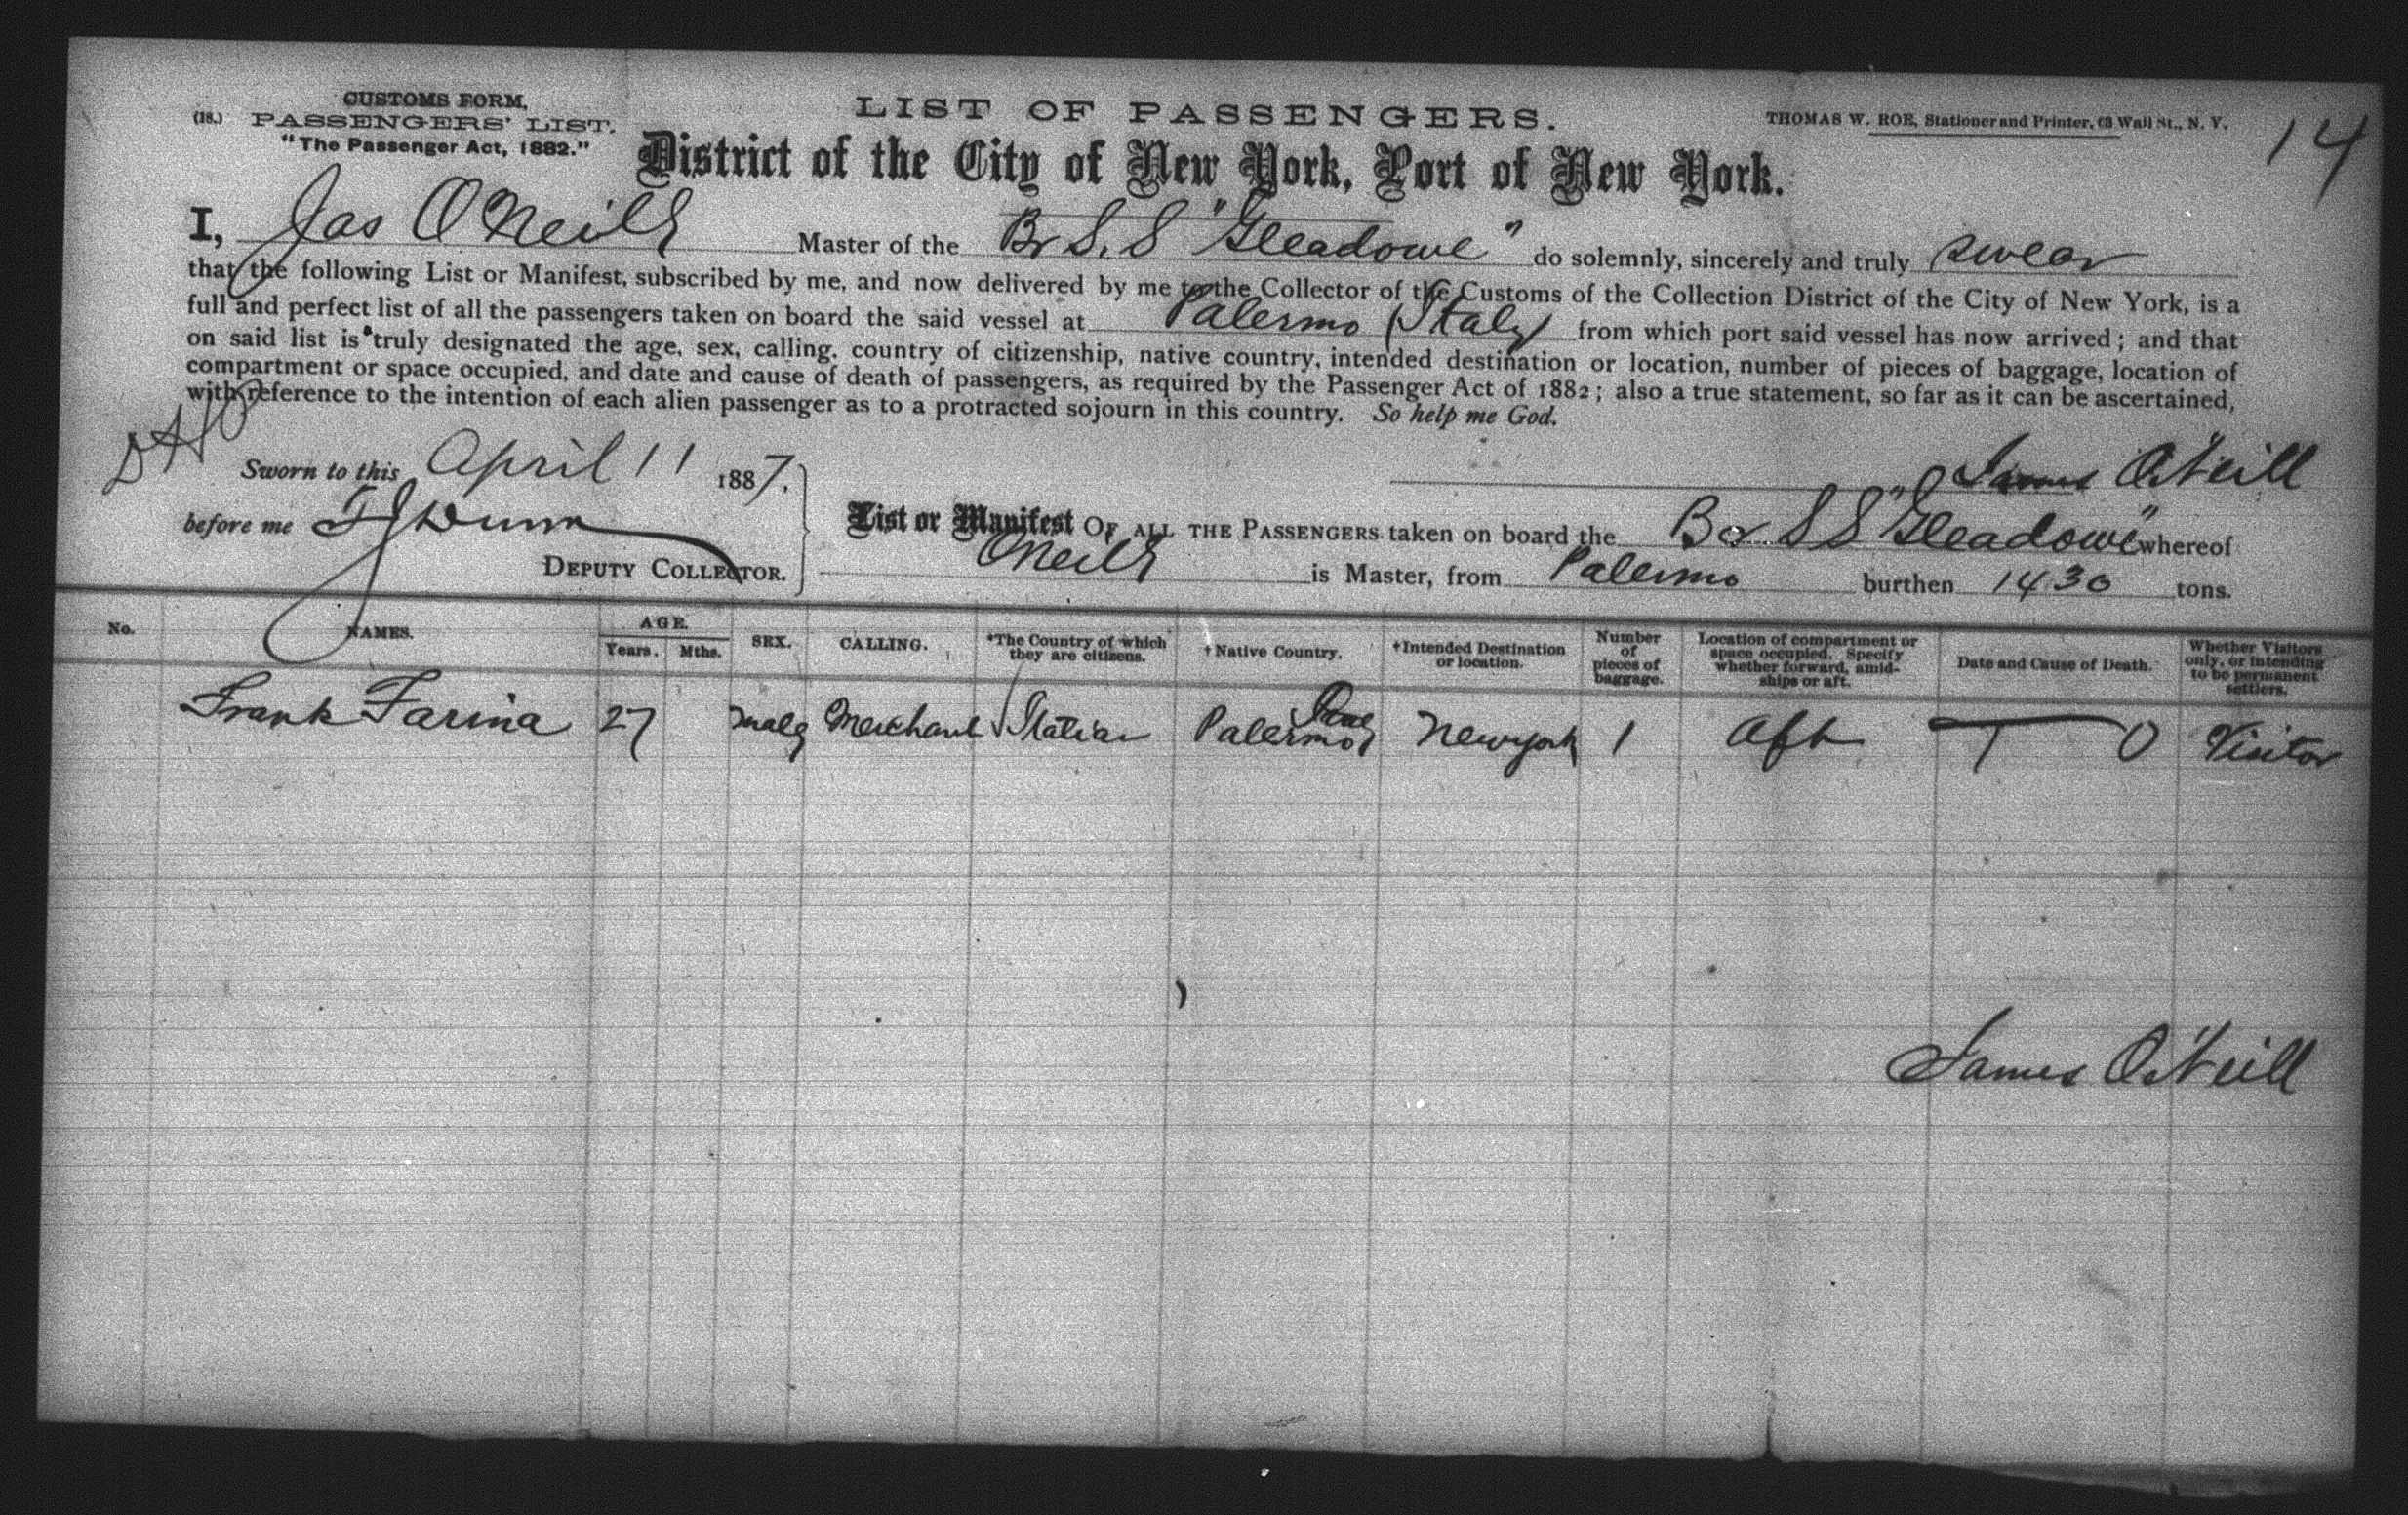 CUSTOMS FORM,
(18.) PASSENGERS' LIST.
"The Passenger Act, 1882."
LIST OF PASSENGERS.
THOMAS W. ROE, Stationer and Printer, 63 Wall St., N. Y.
14
District of the City of New York, Port of New York.
I, Jas O'Neill Master of the Br S.S "Gleadowe" do solemnly, sincerely and truly swear
that the following List or Manifest, subscribed by me, and now delivered by me to the Collector of the Customs of the Collection District of the City of New York, is a
full and perfect list of all the passengers taken on board the said vessel at Palermo (Italy) from which port said vessel has now arrived; and that
on said list is truly designated the age, sex, calling, country of citizenship, native country, intended destination or location, number of pieces of baggage, location of
compartment or space occupied, and date and cause of death of passengers, as required by the Passenger Act of 1882; also a true statement, so far as it can be ascertained,
with reference to the intention of each alien passenger as to a protracted sojourn in this country. So help me God.
Sworn to this April 11 1887.
James O'Neill
before me Dunn
DEPUTY COLLECTOR.
List or Manifest OF ALL THE PASSENGERS taken on board the Br S S "Gleadowe" whereof
O'Neill is Master, from Palermo burthen 1430 tons.
No. NAMES. AGE. Years. Mths. SEX. CALLING. *The Country of which they are citizens. †Native Country. †Intended Destination or location. Number of pieces of baggage. Location of compartment or space occupied. Specify whether forward, amidships or aft. Date and Cause of Death. Whether Visitors only, or intending to be permanent settlers.
Frank Farina 27 male Merchant Italian Palermo New york 1 Aft Visitor
James O'Neill